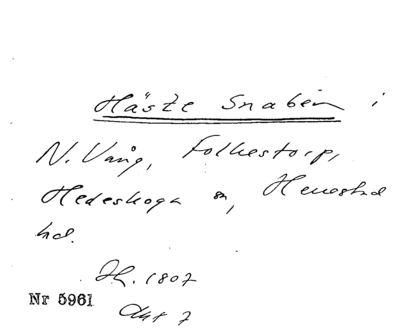 Häste Snaben i
N. Vång, Folkestorp,
Hedeskoga sn, Herrestad
hd.
Jh. 1807
Nr 5961
Akt 7